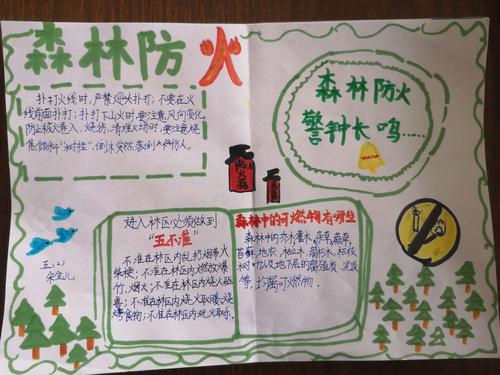 森林防火
扑打火线时,严禁迎火扑打;不要在火
线前面扑打;扑打下山火时,要注意风向变化,
防止被火卷入,烧伤,清理火场时,要注意烧
焦倾斜"树挂",倒木突然落倒伤人。
森林防火
警钟长鸣……
进入林区必须做到
"五不准"
不准在林区内乱扔烟蒂火
柴梗;不准在林区内燃放爆
竹、烟火;不准在林区内烧火驱
兽;不准在林区内烧火取暖、烧
烤食物;不准在林区内玩火取乐。
森林中的可燃物有哪些
森林中的乔木灌木、杂草、蕨草、
苔藓、地衣、枯立木、腐朽木、枯枝
树叶以及地下层的腐殖质、泥炭
等,均属可燃物。
五(2)